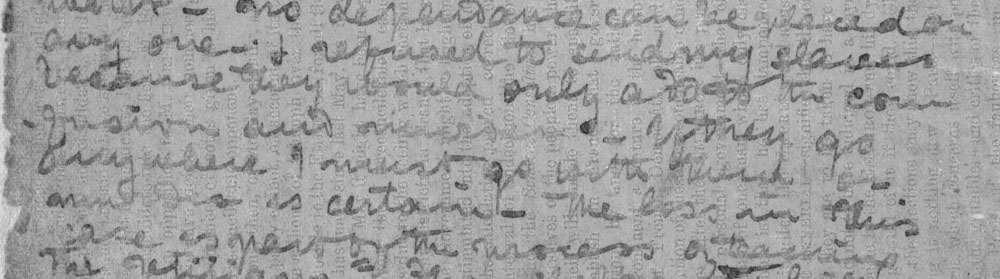 no dependance can be placed on
any one - I refused to send my slaves
because they would only add to the con
fusion and murders - If they go
anywhere I must go with them or
murder is certain - The loss in this
is part of the process of
the